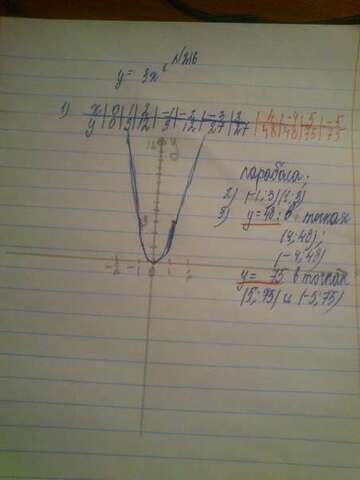 N216
y = 3x²
1) x | 0 | 1 | 2 | -1 | -2 | -3 | 3 | 4 | -4 | 5 | -5
y | 0 | 3 | 12 | 3 | 12 | 27 | 27 | 48 | 48 | 75 | 75
12 y
парабола;
2) (-1; 3) (1; 3)
3) y = 48: в точках
3
(4; 48);
(-4; 48)
y = 75 в точках
-2 -1 0 1 2
(5; 75) и (-5; 75)